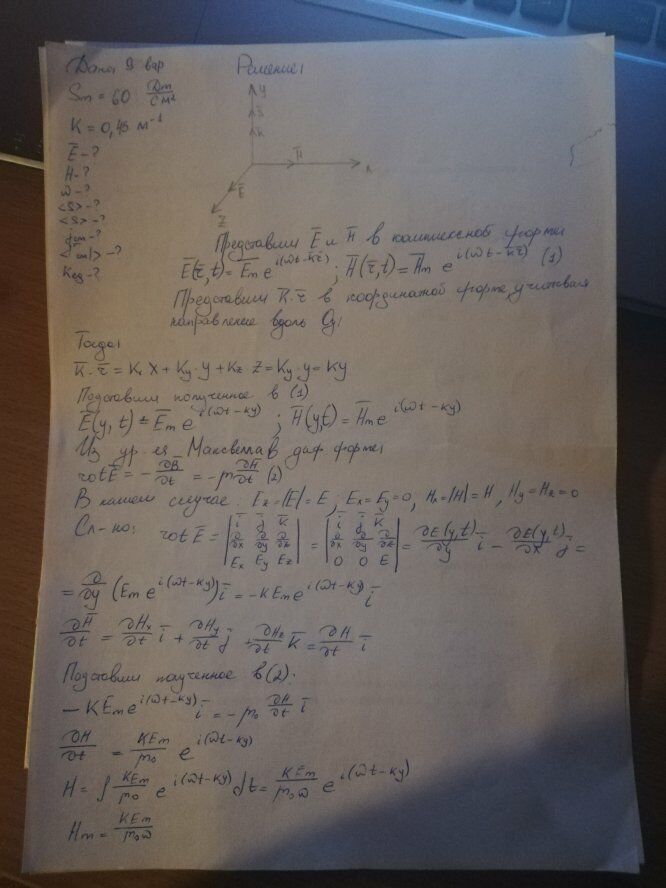 Дано 9 вар Решение:
Sm = 60 Дж/см²
K = 0,45 м⁻¹
E̅ - ?
H - ?
ω - ?
<S> - ?
<S> - ?
jсм - ?
- ?
Kед - ?
y
S̅
K
H̅
x
E̅
z
Представим E̅ и H̅ в комплексной форме
E̅(r̅,t) = E̅m e^{i(ωt - k̅r̅)} ; H̅(r̅,t) = H̅m e^{i(ωt - k̅r̅)} (1)
Представим K̅·r̅ в координатной форме, учитывая
направление вдоль Oy:
Тогда:
K̅·r̅ = Kx X + Ky·y + Kz Z = Ky·y = Ky
Подставим полученное в (1)
E̅(y,t) = E̅m e^{i(ωt - ky)} ; H̅(y,t) = H̅m e^{i(ωt - ky)}
Из ур-я Максвелла в диф форме:
rot E̅ = - ∂B̅/∂t = -μ ∂H̅/∂t (2)
В нашем случае: Ez = |E̅| = E ; Ex = Ey = 0, Hx = |H̅| = H, Hy = Hz = 0
Сл-но: rot E̅ = | i̅ j̅ k̅ ; ∂/∂x ∂/∂y ∂/∂z ; Ex Ey Ez | = | i̅ j̅ k̅ ; ∂/∂x ∂/∂y ∂/∂z ; 0 0 E | = ∂E(y,t)/∂y i̅ - ∂E(y,t)/∂x j̅ =
= ∂/∂y (Em e^{i(ωt - ky)}) i̅ = -K Em e^{i(ωt - ky)} i̅
∂H̅/∂t = ∂Hx/∂t i̅ + ∂Hy/∂t j̅ + ∂Hz/∂t k̅ = ∂H/∂t i̅
Подставим полученное в (2):
-K Em e^{i(ωt - ky)} i̅ = -μ₀ ∂H/∂t i̅
∂H/∂t = KEm/μ₀ e^{i(ωt - ky)}
H = ∫ KEm/μ₀ e^{i(ωt - ky)} dt = KEm/μ₀ω e^{i(ωt - ky)}
Hm = KEm/μ₀ω